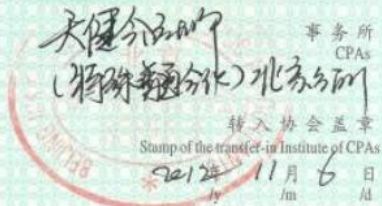 天健会计师 事务所
CPAs
(特殊普通合伙)北京分所
转入协会盖章
Stamp of the transfer-in Institute of CPAs
2012年 11月 6日
/y /m /d